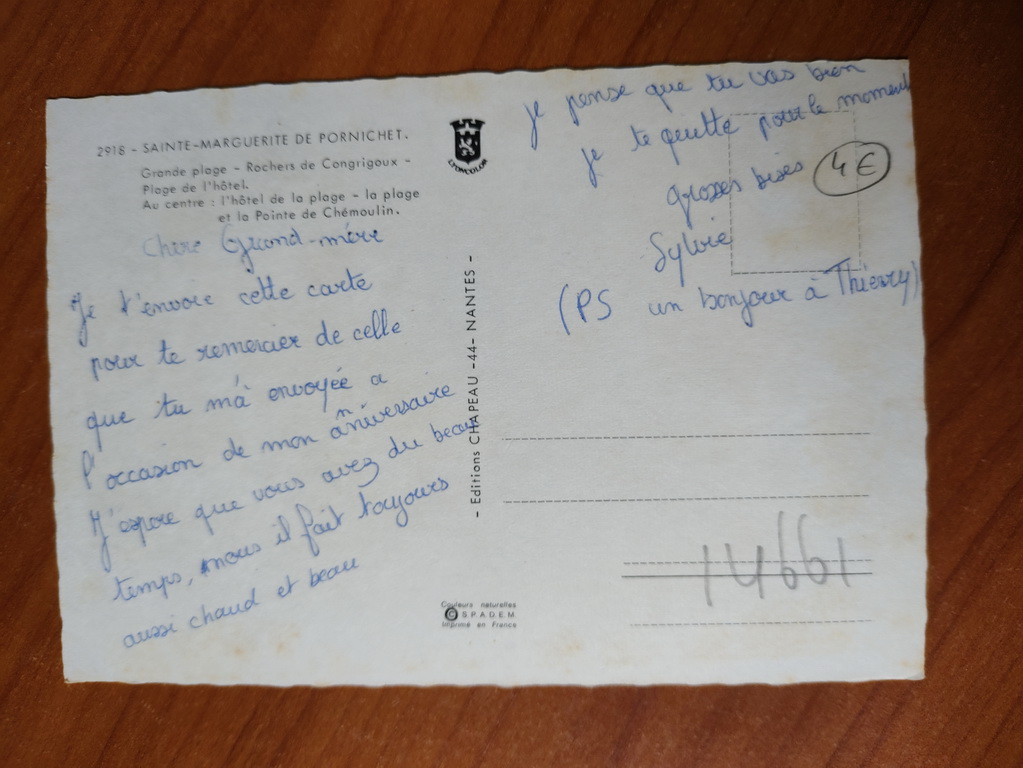 2918 - SAINTE-MARGUERITE DE PORNICHET.
Grande plage - Rochers de Congrigoux -
Plage de l'hôtel.
Au centre : l'hôtel de la plage - la plage
et la Pointe de Chémoulin.
LYONCOLOR
Chère Grand-mère
Je t'envoie cette carte
pour te remercier de celle
que tu m'a envoyée a
l'occasion de mon anniversaire
J'espère que vous avez du beau
temps, nous il fait toujours
aussi chaud et beau
- Editions CHAPEAU -44- NANTES -
Couleurs naturelles
© S.P.A.D.E.M.
Imprimé en France
je pense que tu vas bien
je te quitte pour le moment
grosses bises
Sylvie
(PS un bonjour à Thierry)
4€
14661